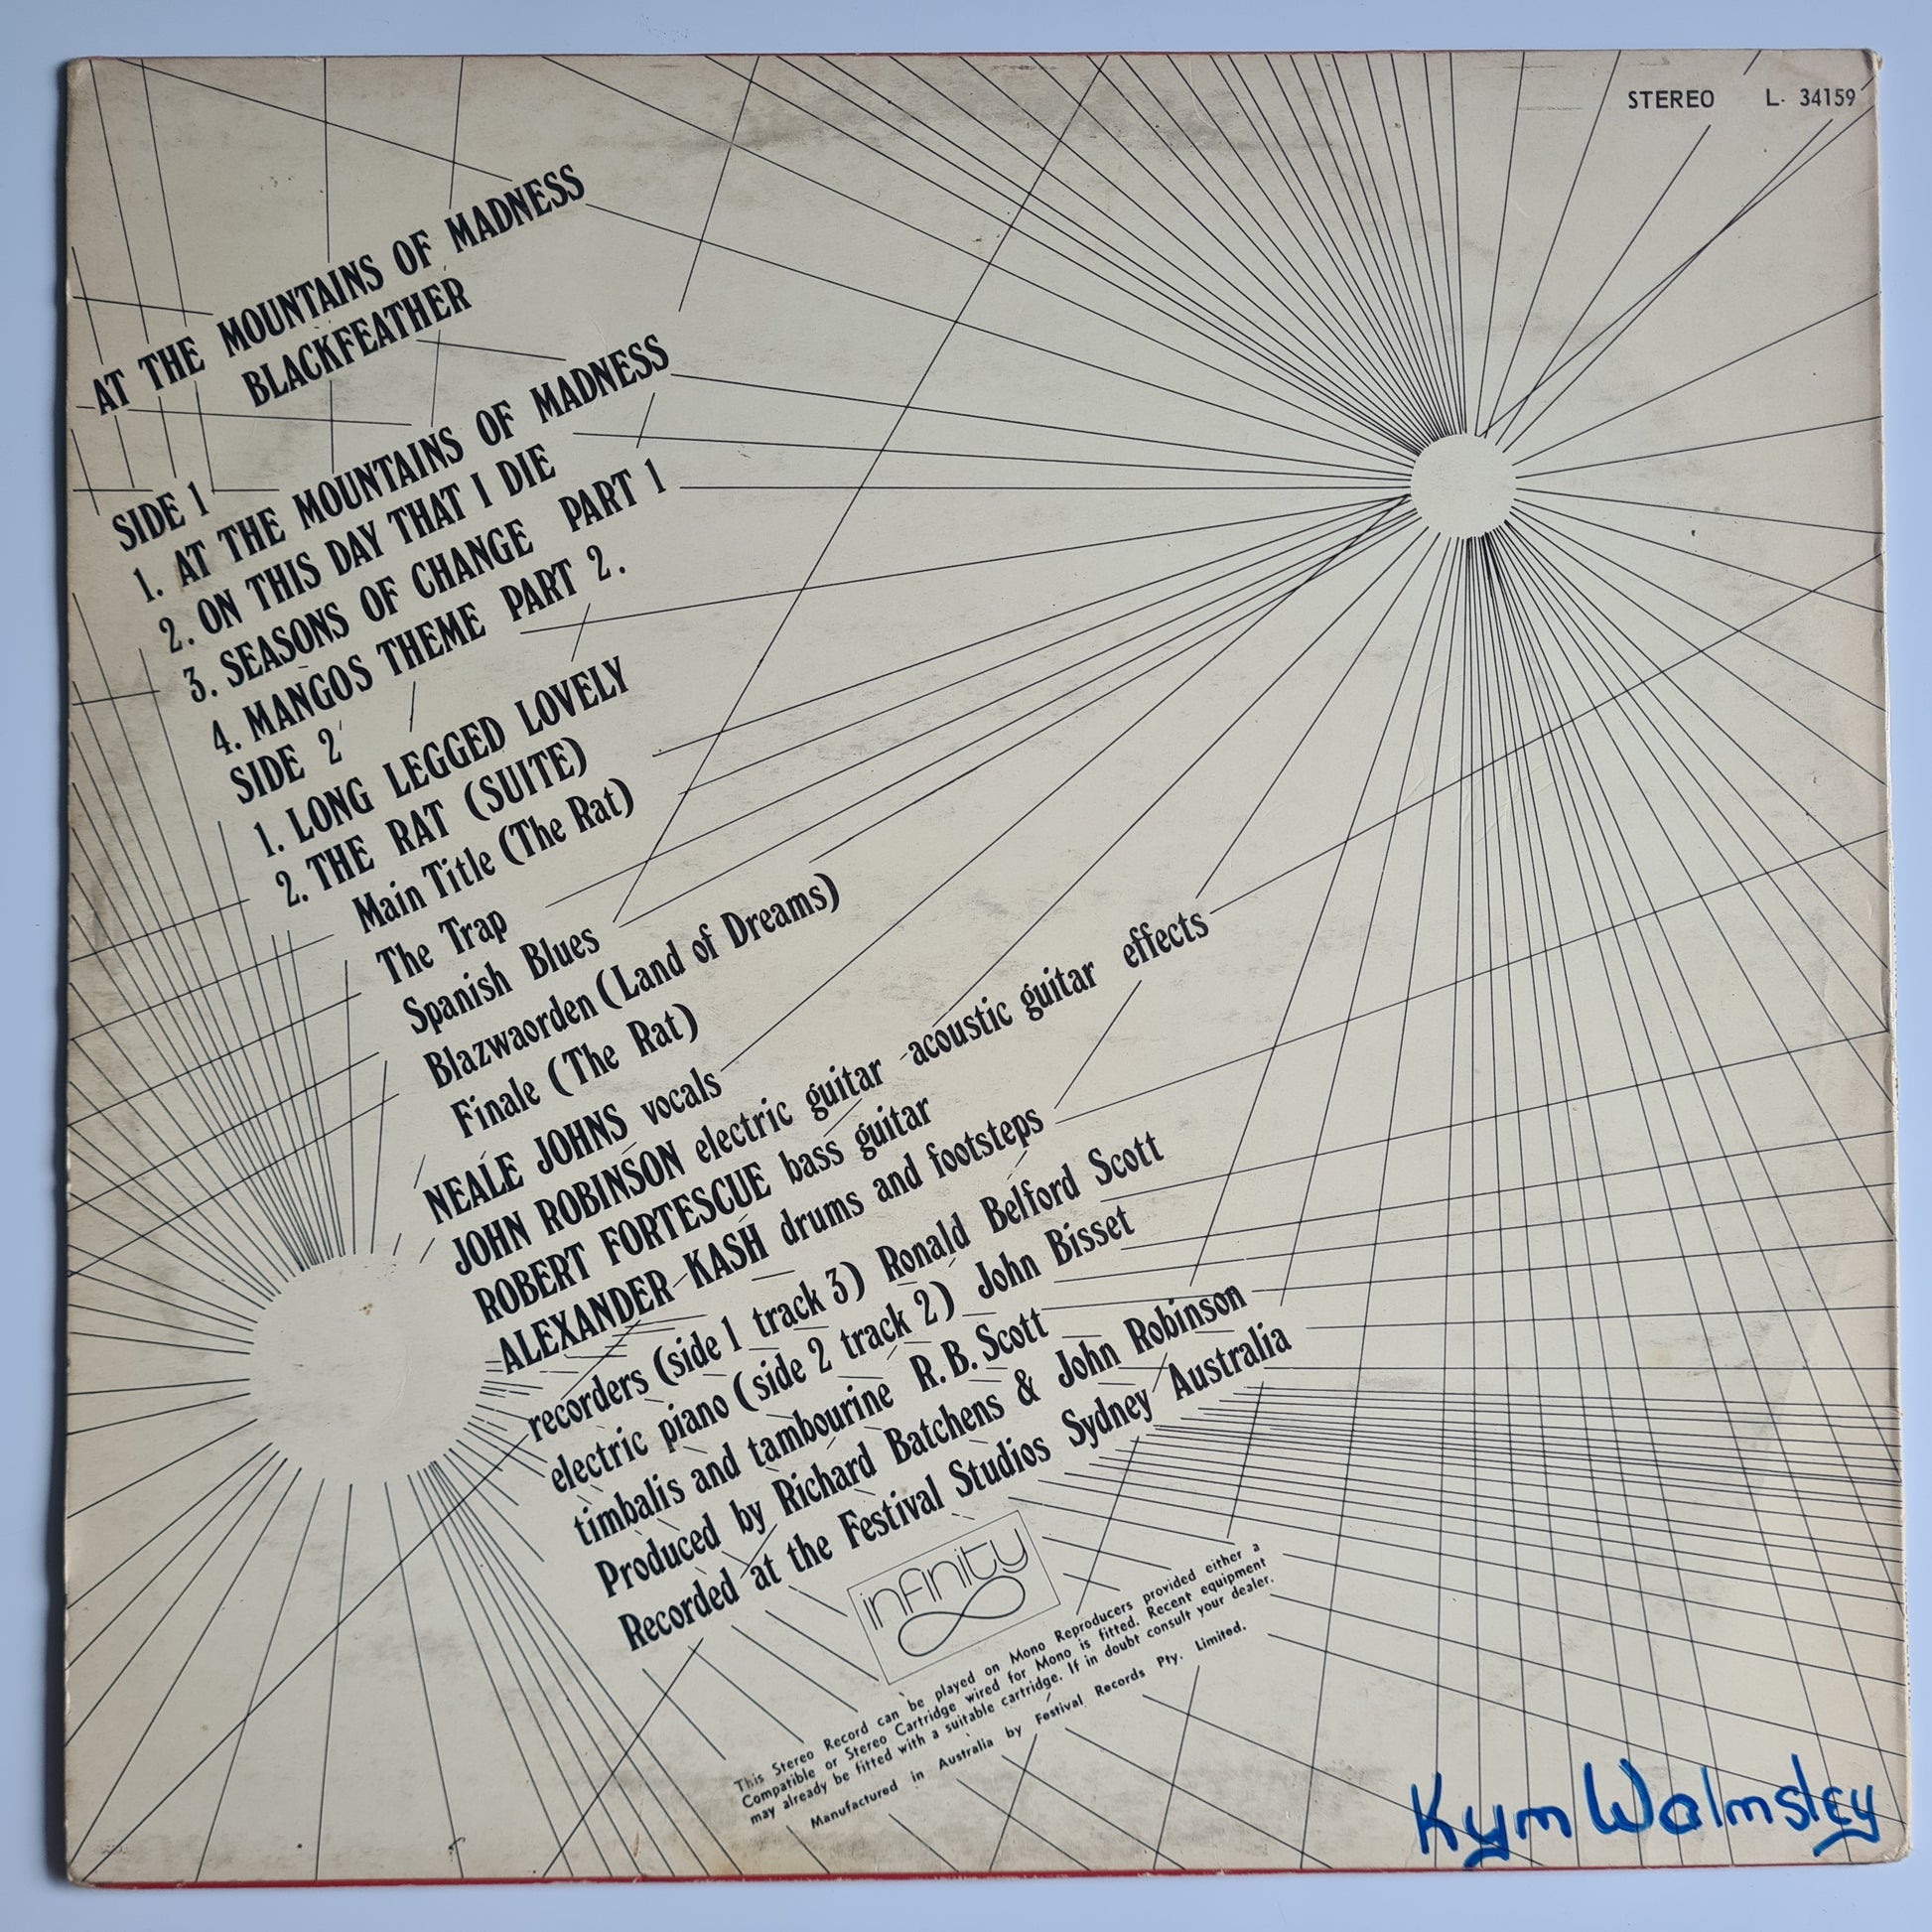 STEREO L. 34159
AT THE MOUNTAINS OF MADNESS
BLACKFEATHER
SIDE 1
1. AT THE MOUNTAINS OF MADNESS
2. ON THIS DAY THAT I DIE
3. SEASONS OF CHANGE PART 1
4. MANGOS THEME PART 2.
SIDE 2
1. LONG LEGGED LOVELY
2. THE RAT (SUITE)
Main Title (The Rat)
The Trap
Spanish Blues
Blazwaorden (Land of Dreams)
Finale (The Rat)
NEALE JOHNS vocals
JOHN ROBINSON electric guitar acoustic guitar effects
ROBERT FORTESCUE bass guitar
ALEXANDER KASH drums and footsteps
recorders (side 1 track 3) Ronald Belford Scott
electric piano (side 2 track 2) John Bisset
timbalis and tambourine R.B. Scott
Produced by Richard Batchens & John Robinson
Recorded at the Festival Studios Sydney Australia
infinity
This Stereo Record can be played on Mono Reproducers provided either a
Compatible or Stereo Cartridge wired for Mono is fitted. Recent equipment
may already be fitted with a suitable cartridge. If in doubt consult your dealer.
Manufactured in Australia by Festival Records Pty. Limited.
Kym Walmsley